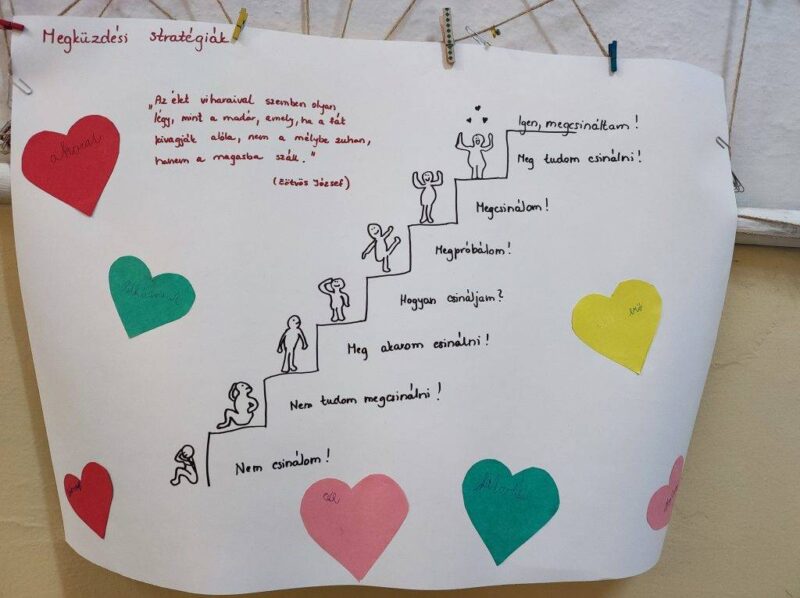 Megküzdési stratégiák
„Az élet viharaival szemben olyan
légy, mint a madár, amely, ha a fát
kivágják alóla, nem a mélybe zuhan,
hanem a magasba száll."
(Eötvös József)
Igen, megcsináltam!
Meg tudom csinálni!
Megcsinálom!
Megpróbálom!
Hogyan csináljam?
Meg akarom csinálni!
Nem tudom megcsinálni!
Nem csinálom!
akarat